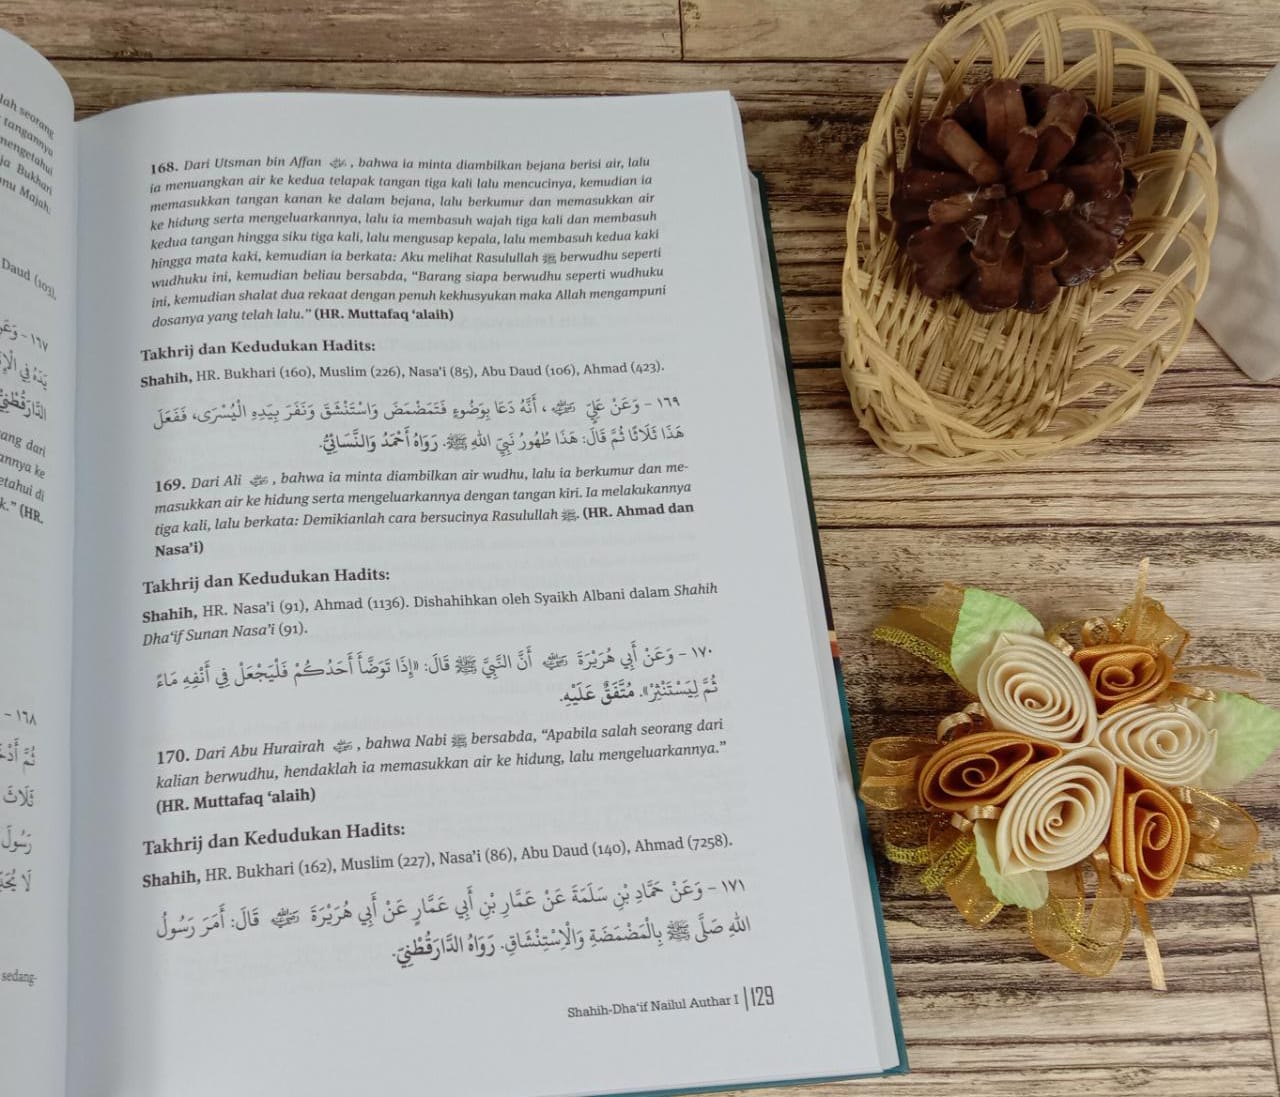 lah seorang
tangannya
mengetahui
ja Bukhari
nu Majah:
Daud (103),
١٦٧ - وَعَنْ
الدَّارَقُطْنِيُّ
ang dari
annya ke
etahui di
k." (HR.
١٦٨ -
ثَلَاثَ
رَسُولَ
sedang-
168. Dari Utsman bin Affan ﵁, bahwa ia minta diambilkan bejana berisi air, lalu
ia menuangkan air ke kedua telapak tangan tiga kali lalu mencucinya, kemudian ia
memasukkan tangan kanan ke dalam bejana, lalu berkumur dan memasukkan air
ke hidung serta mengeluarkannya, lalu ia membasuh wajah tiga kali dan membasuh
kedua tangan hingga siku tiga kali, lalu mengusap kepala, lalu membasuh kedua kaki
hingga mata kaki, kemudian ia berkata: Aku melihat Rasulullah ﷺ berwudhu seperti
wudhuku ini, kemudian beliau bersabda, "Barang siapa berwudhu seperti wudhuku
ini, kemudian shalat dua rekaat dengan penuh kekhusyukan maka Allah mengampuni
dosanya yang telah lalu." (HR. Muttafaq 'alaih)
Takhrij dan Kedudukan Hadits:
Shahih, HR. Bukhari (160), Muslim (226), Nasa'i (85), Abu Daud (106), Ahmad (423).
١٦٩ - وَعَنْ عَلِيٍّ ﵁، أَنَّهُ دَعَا بِوَضُوءٍ فَتَمَضْمَضَ وَاسْتَنْشَقَ وَنَفَرَ بِيَدِهِ الْيُسْرَى، فَفَعَلَ
هَذَا ثَلَاثًا ثُمَّ قَالَ: هَذَا طُهُورُ نَبِيِّ اللهِ ﷺ. رَوَاهُ أَحْمَدُ وَالنَّسَائِيُّ.
169. Dari Ali ﵁, bahwa ia minta diambilkan air wudhu, lalu ia berkumur dan me-
masukkan air ke hidung serta mengeluarkannya dengan tangan kiri. Ia melakukannya
tiga kali, lalu berkata: Demikianlah cara bersucinya Rasulullah ﷺ. (HR. Ahmad dan
Nasa'i)
Takhrij dan Kedudukan Hadits:
Shahih, HR. Nasa'i (91), Ahmad (1136). Dishahihkan oleh Syaikh Albani dalam Shahih
Dha'if Sunan Nasa'i (91).
١٧٠ - وَعَنْ أَبِي هُرَيْرَةَ ﵁ أَنَّ النَّبِيَّ ﷺ قَالَ: «إِذَا تَوَضَّأَ أَحَدُكُمْ فَلْيَجْعَلْ فِي أَنْفِهِ مَاءً
ثُمَّ لِيَسْتَنْثِرْ». مُتَّفَقٌ عَلَيْهِ.
170. Dari Abu Hurairah ﵁, bahwa Nabi ﷺ bersabda, "Apabila salah seorang dari
kalian berwudhu, hendaklah ia memasukkan air ke hidung, lalu mengeluarkannya."
(HR. Muttafaq 'alaih)
Takhrij dan Kedudukan Hadits:
Shahih, HR. Bukhari (162), Muslim (227), Nasa'i (86), Abu Daud (140), Ahmad (7258).
١٧١ - وَعَنْ حَمَّادِ بْنِ سَلَمَةَ عَنْ عَمَّارِ بْنِ أَبِي عَمَّارٍ عَنْ أَبِي هُرَيْرَةَ ﵁ قَالَ: أَمَرَ رَسُولُ
اللهِ صَلَّى ﷺ بِالْمَضْمَضَةِ وَالْاِسْتِنْشَاقِ. رَوَاهُ الدَّارَقُطْنِيّ.
Shahih-Dha'if Nailul Authar I | 129